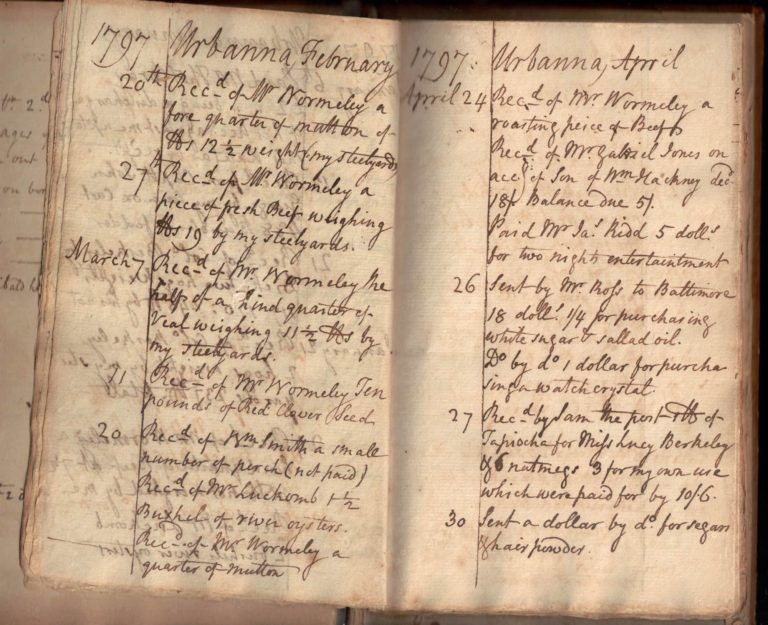 1797 Urbanna, February
20th Recd of Mr Wormeley a
fore quarter of mutton of
lbs 12 1/2 weight (my steelyards
27th Recd of Mr Wormeley a
piece of fresh Beef weighing
lbs 19 by my steelyards.
March 7 Recd of Mr. Wormeley the
half of a hind quarter of
Veal weighing 11 1/2 lbs by
my steelyards.
Recd of Mr Wormeley Ten
pounds of Red Clover Seed
20 Recd of Wm Smith a small
number of perch (not paid)
Recd of Mr Luckomb 1 1/2
Bushel of river oysters.
Recd of Mr Wormeley a
quarter of Mutton
1797. Urbanna, April
April 24 Recd of Mr Wormeley a
roasting peice of Beef
Recd of Mr Gabriel Jones on
acct of Son of Wm Hackney decd
18/ Balance due 5/.
Paid Mr Jas Kidd 5 dolls
for two nights entertaintment
26 Sent by Mr. Ross to Baltimore
18 dolls 1/4 for purchasing
white sugar & sallad oil.
Do by do 1 dollar for purcha
sing a watch crystal.
27 Recd by Sam the post 1 lb of
Tapiocha for Miss Lucy Berkeley
& 6 nutmegs 3 for my own use
which were paid for by 10/6.
30 Sent a dollar by do for segars
& hair powder.